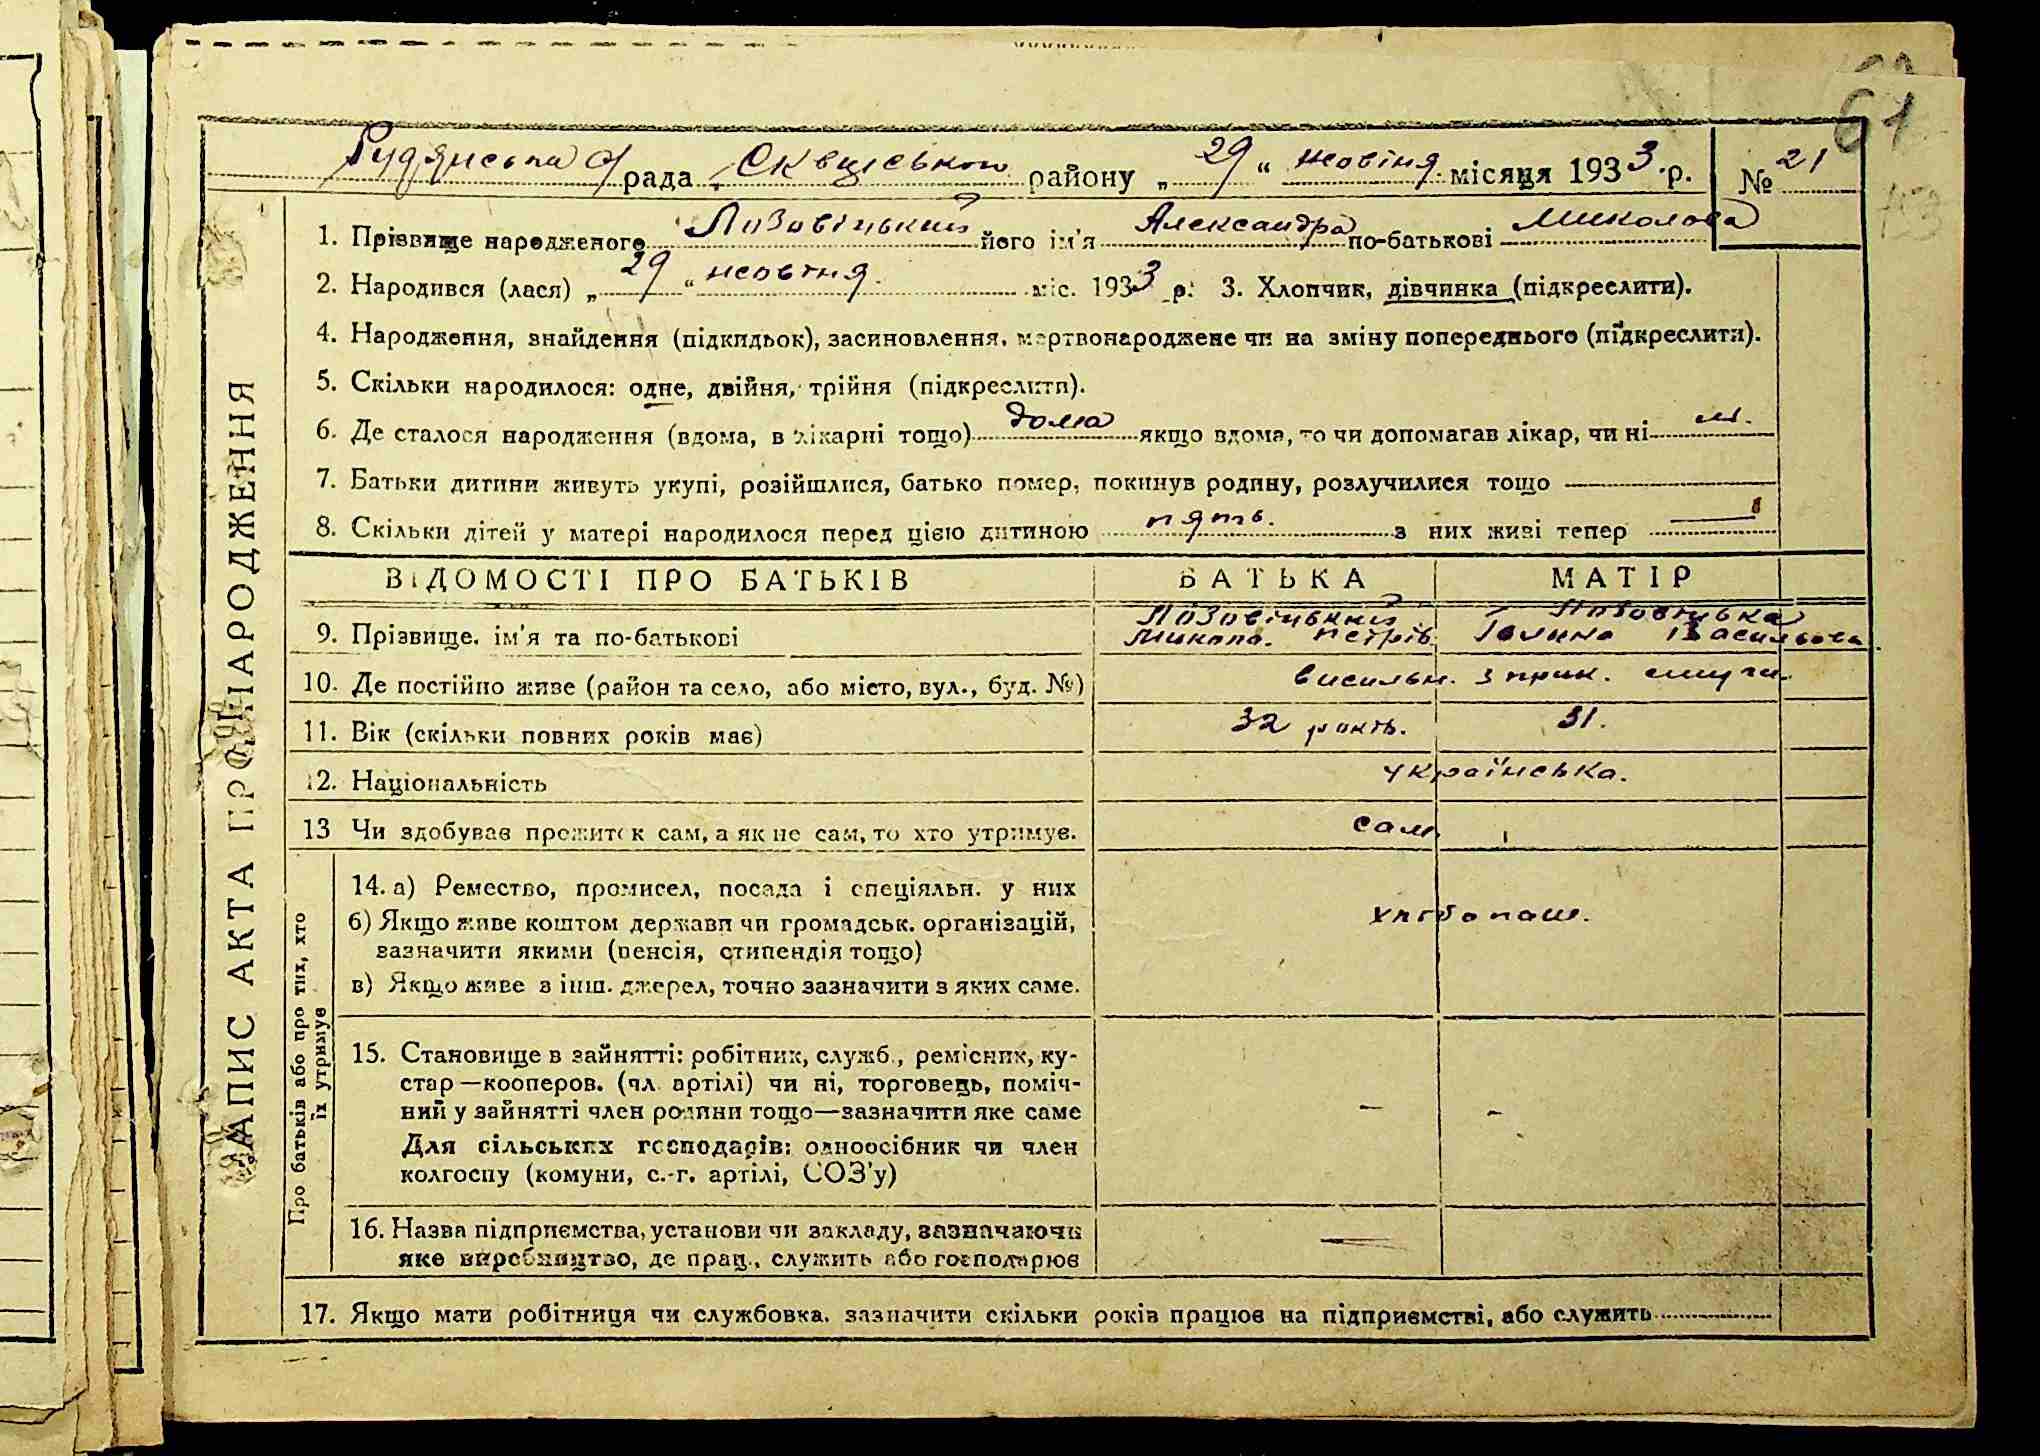 61
Рудянська с/рада Сквирського району „29“ жовтня місяця 1933 р. № 21
1. Прізвище народженого Лозовіцький його ім'я Александра по-батькові Миколова
2. Народився (лася) „29“ жовтня міс. 1933 р. 3. Хлопчик, дівчинка (підкреслити).
4. Народження, знайдення (підкидьок), засиновлення, мертвонароджене чи на зміну попереднього (підкреслити).
5. Скільки народилося: одне, двійня, трійня (підкреслити).
6. Де сталося народження (вдома, в лікарні тощо) дома якщо вдома, то чи допомагав лікар, чи ні
7. Батьки дитини живуть укупі, розійшлися, батько помер, покинув родину, розлучилися тощо
8. Скільки дітей у матері народилося перед цією дитиною пять. з них живі тепер
ЗАПИС АКТА ПРО НАРОДЖЕННЯ
ВІДОМОСТІ ПРО БАТЬКІВ БАТЬКА МАТІР
9. Прізвище, ім'я та по-батькові Лозовіцький Микола. Петрів. Лозовицька Галина Васильова
10. Де постійно живе (район та село, або місто, вул., буд. №) висильн. з прик. смуги.
11. Вік (скільки повних років має) 32 рокть. 31.
12. Національність українська.
13 Чи здобував прожиток сам, а як не сам, то хто утримує. сам.
Про батьків або про тих, хто
їх утримує
14. а) Ремество, промисел, посада і спеціяльн. у них
б) Якщо живе коштом держави чи громадськ. організацій, хлібопаш.
зазначити якими (пенсія, стипендія тощо)
в) Якщо живе з інш. джерел, точно зазначити з яких саме.
15. Становище в зайнятті: робітник, служб., ремісник, ку-
стар—кооперов. (чл. артілі) чи ні, торговець, поміч-
ний у зайнятті член родини тощо—зазначити яке саме
Для сільських господарів: одноосібник чи член
колгоспу (комуни, с.-г. артілі, СОЗ'у)
16. Назва підприємства, установи чи закладу, зазначаючи
яке виробництво, де прац., служить або господарює
17. Якщо мати робітниця чи службовка, зазначити скільки років працює на підприємстві, або служить